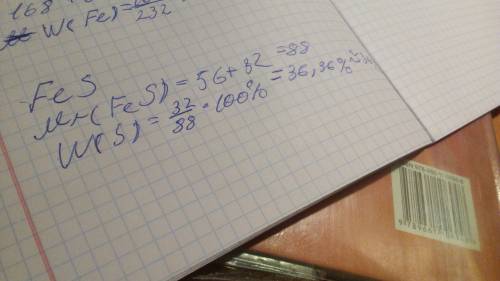 168
W(Fe)=
232
FeS
Mr(FeS) = 56+32 =88
W(S) = 32/88 · 100% = 36,36%